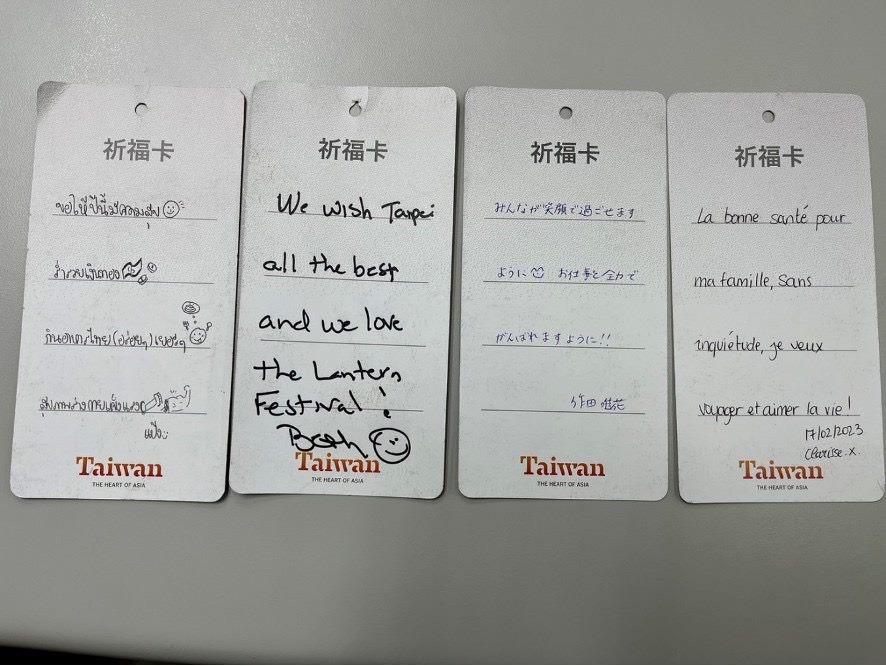 祈福卡
ขอให้ปีนี้มีความสุข
ร่ำรวยเงินทอง
กินอาหารไทย(อร่อยๆ)เยอะๆ
สุขภาพร่างกายแข็งแรง
แป้ง
Taiwan
THE HEART OF ASIA
祈福卡
We wish Taipei
all the best
and we love
the Lantern
Festival!
Taiwan
THE HEART OF ASIA
祈福卡
みんなが笑顔で過ごせます
ように お仕事を全力で
がんばれますように!!
作田
Taiwan
THE HEART OF ASIA
祈福卡
La bonne santé pour
ma famille, sans
inquiétude, je veux
voyager et aimer la vie!
17/02/2023
Clarisse.x.
Taiwan
THE HEART OF ASIA